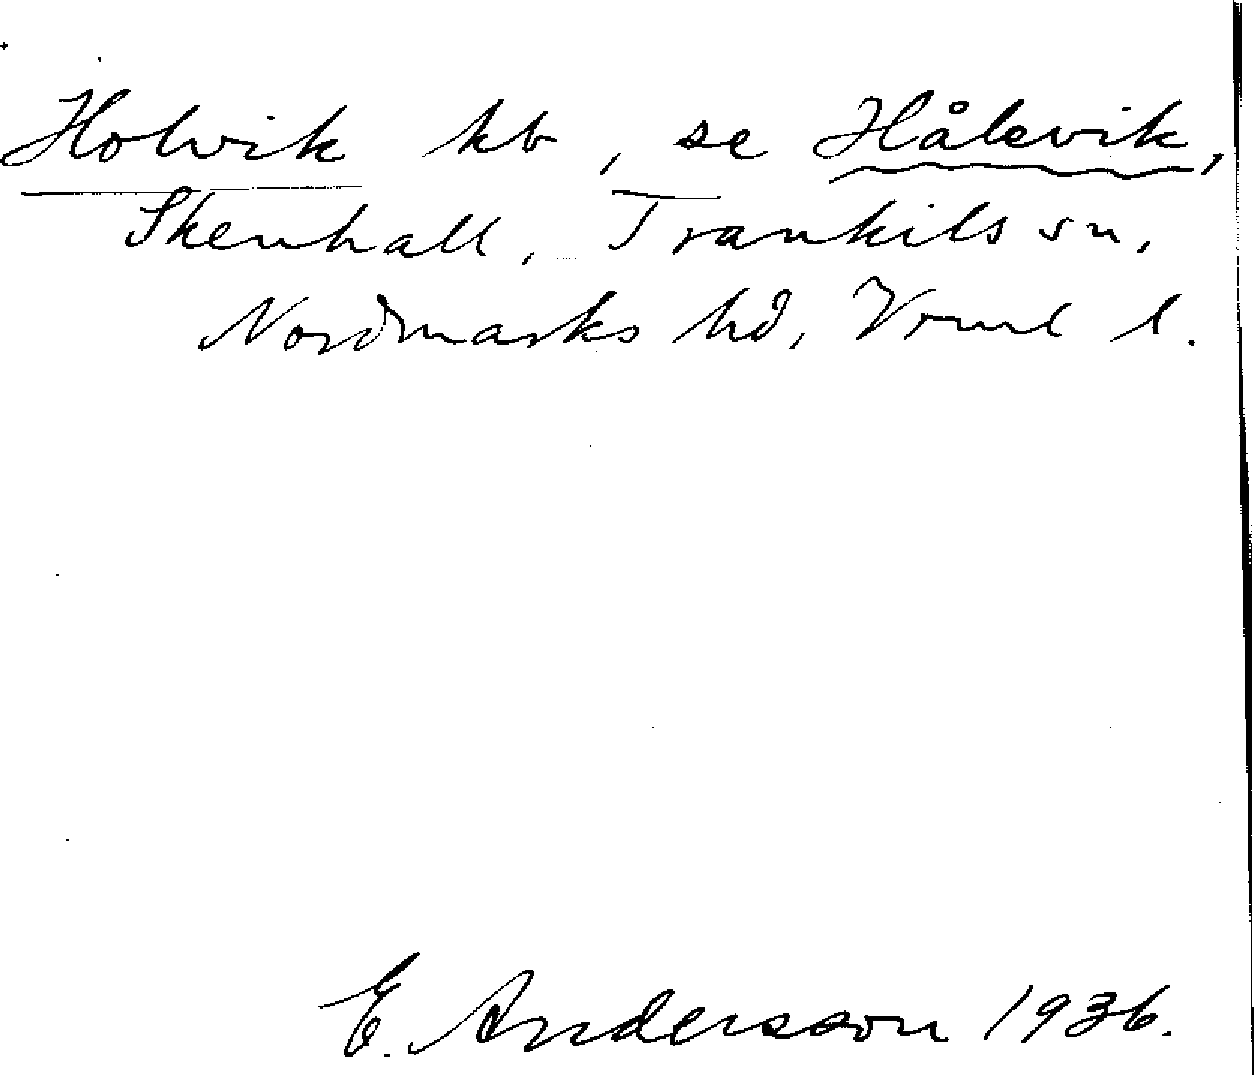 Holvik hb, se Hålevik,
Skenhall, Trankils sn,
Nordmarks hd, Vrml l.
E. Andersson 1936.